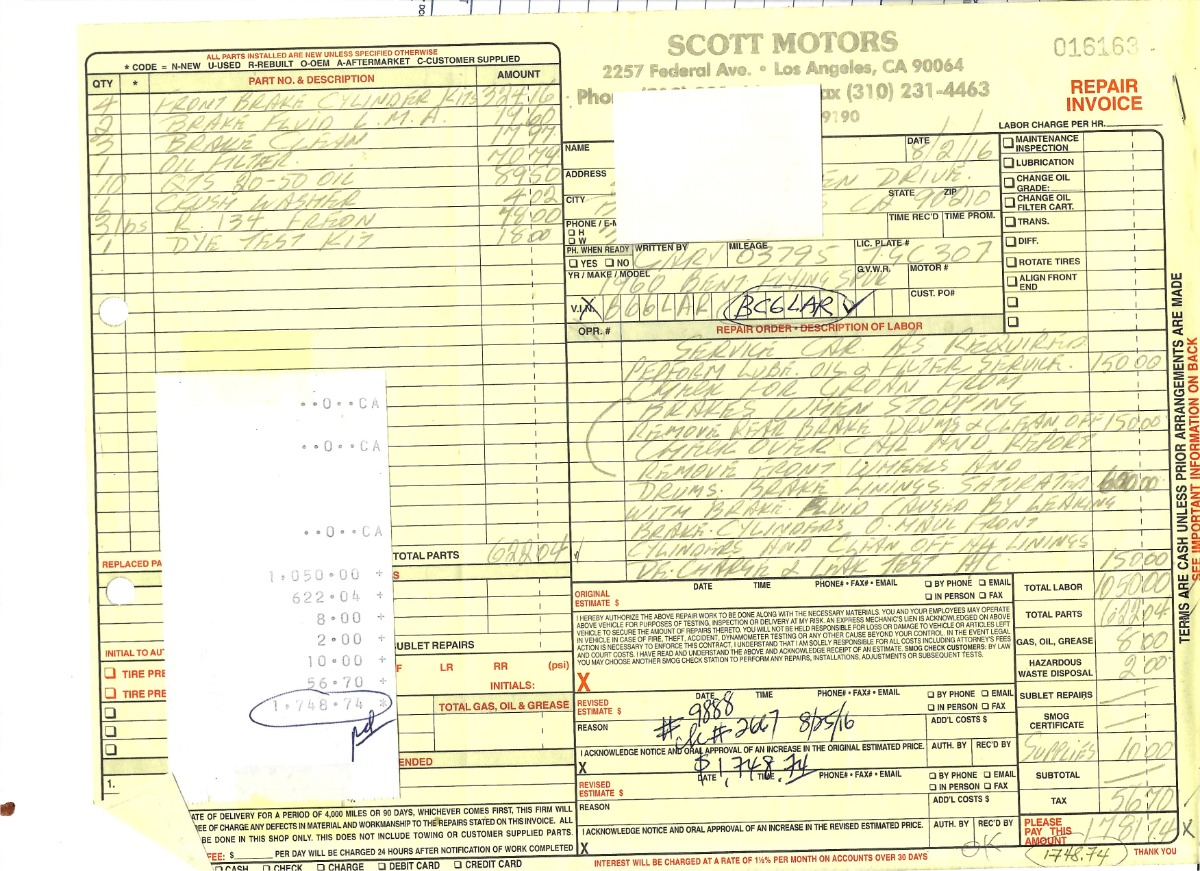 SCOTT MOTORS
2257 Federal Ave. • Los Angeles, CA 90064
Fax (310) 231-4463
9190
016163
REPAIR INVOICE
LABOR CHARGE PER HR.
ALL PARTS INSTALLED ARE NEW UNLESS SPECIFIED OTHERWISE
* CODE = N-NEW U-USED R-REBUILT O-OEM A-AFTERMARKET C-CUSTOMER SUPPLIED
QTY * PART NO. & DESCRIPTION AMOUNT
4 FRONT BRAKE CYLINDER KITS 324 16
2 BRAKE FLUID L.M.A.
3 BRAKE CLEAN
1 OIL FILTER 70 74
10 QTS 20-50 OIL 89 50
CRUSH WASHER 4 02
3 lbs R. 134 FREON
1 DYE TEST KIT 18 00
NAME
DATE 8/2/16
ADDRESS EN DRIVE.
CITY STATE CA ZIP 90210
PHONE / E-M
H
W
TIME REC'D TIME PROM.
PH. WHEN READY YES NO
WRITTEN BY GARY
MILEAGE 03795
LIC. PLATE # TGC 307
YR / MAKE / MODEL 1960 BENT. FLYING SPUR
G.V.W.R. MOTOR #
V.I.N. BC6LAR
CUST. PO#
MAINTENANCE INSPECTION
LUBRICATION
CHANGE OIL GRADE:
CHANGE OIL FILTER CART.
TRANS.
DIFF.
ROTATE TIRES
ALIGN FRONT END
OPR. # REPAIR ORDER - DESCRIPTION OF LABOR
SERVICE CAR AS REQUIRED
PERFORM LUBE. OIL & FILTER SERVICE. 150 00
CHECK FOR GROAN FROM
BRAKES WHEN STOPPING
REMOVE REAR BRAKE DRUMS & CLEAN OFF 150 00
CHECK OVER CAR AND REPORT
REMOVE FRONT WHEELS AND
DRUMS. BRAKE LININGS SATURATED 600 00
WITH BRAKE FLUID CAUSED BY LEAKING
BRAKE CYLINDERS O-HAUL FRONT
CYLINDERS AND CLEAN OFF ALL LININGS
CHARGE & LEAK TEST A/C 150 00
TERMS ARE CASH UNLESS PRIOR ARRANGEMENTS ARE MADE
SEE IMPORTANT INFORMATION ON BACK
··0··CA
··0··CA
··0··CA
1,050·00 +
622·04 +
8·00 +
2·00 +
10·00 +
56·70 +
1,748·74 *
pd
TOTAL PARTS 622 04
REPLACED PA
S
SUBLET REPAIRS
INITIAL TO AU
F LR RR (psi)
TIRE PRE
TIRE PRE
INITIALS:
TOTAL GAS, OIL & GREASE
ENDED
1.
ORIGINAL ESTIMATE $ DATE TIME PHONE# • FAX# • EMAIL BY PHONE EMAIL IN PERSON FAX
I HEREBY AUTHORIZE THE ABOVE REPAIR WORK TO BE DONE ALONG WITH THE NECESSARY MATERIALS. YOU AND YOUR EMPLOYEES MAY OPERATE
ABOVE VEHICLE FOR PURPOSES OF TESTING, INSPECTION OR DELIVERY AT MY RISK. AN EXPRESS MECHANIC'S LIEN IS ACKNOWLEDGED ON ABOVE
VEHICLE TO SECURE THE AMOUNT OF REPAIRS THERETO. YOU WILL NOT BE HELD RESPONSIBLE FOR LOSS OR DAMAGE TO VEHICLE OR ARTICLES LEFT
IN VEHICLE IN CASE OF FIRE, THEFT, ACCIDENT, DYNAMOMETER TESTING OR ANY OTHER CAUSE BEYOND YOUR CONTROL. IN THE EVENT LEGAL
ACTION IS NECESSARY TO ENFORCE THIS CONTRACT, I UNDERSTAND THAT I AM SOLELY RESPONSIBLE FOR ALL COSTS INCLUDING ATTORNEY'S FEES
AND COURT COSTS. I HAVE READ AND UNDERSTAND THE ABOVE AND ACKNOWLEDGE RECEIPT OF AN ESTIMATE. SMOG CHECK CUSTOMERS: BY LAW
YOU MAY CHOOSE ANOTHER SMOG CHECK STATION TO PERFORM ANY REPAIRS, INSTALLATIONS, ADJUSTMENTS OR SUBSEQUENT TESTS.
X
REVISED ESTIMATE $ DATE TIME PHONE# • FAX# • EMAIL BY PHONE EMAIL IN PERSON FAX
# 9888
REASON ADD'L COSTS $
ck # 2667 8/25/16
I ACKNOWLEDGE NOTICE AND ORAL APPROVAL OF AN INCREASE IN THE ORIGINAL ESTIMATED PRICE. AUTH. BY REC'D BY
X
$1,748.74
REVISED ESTIMATE $ DATE TIME PHONE# • FAX# • EMAIL BY PHONE EMAIL IN PERSON FAX
REASON ADD'L COSTS $
I ACKNOWLEDGE NOTICE AND ORAL APPROVAL OF AN INCREASE IN THE REVISED ESTIMATED PRICE. AUTH. BY REC'D BY
X
OK
TOTAL LABOR 1050 00
TOTAL PARTS 622 04
GAS, OIL, GREASE 8 00
HAZARDOUS WASTE DISPOSAL 2 00
SUBLET REPAIRS
SMOG CERTIFICATE
SUPPLIES 10 00
SUBTOTAL
TAX 56 70
PLEASE PAY THIS AMOUNT 1781 74
X
1748.74
THANK YOU
ATE OF DELIVERY FOR A PERIOD OF 4,000 MILES OR 90 DAYS, WHICHEVER COMES FIRST, THIS FIRM WILL
EE OF CHARGE ANY DEFECTS IN MATERIAL AND WORKMANSHIP TO THE REPAIRS STATED ON THIS INVOICE. ALL
BE DONE IN THIS SHOP ONLY. THIS DOES NOT INCLUDE TOWING OR CUSTOMER SUPPLIED PARTS.
FEE: $ PER DAY WILL BE CHARGED 24 HOURS AFTER NOTIFICATION OF WORK COMPLETED
CASH CHECK CHARGE DEBIT CARD CREDIT CARD
INTEREST WILL BE CHARGED AT A RATE OF 1½% PER MONTH ON ACCOUNTS OVER 30 DAYS